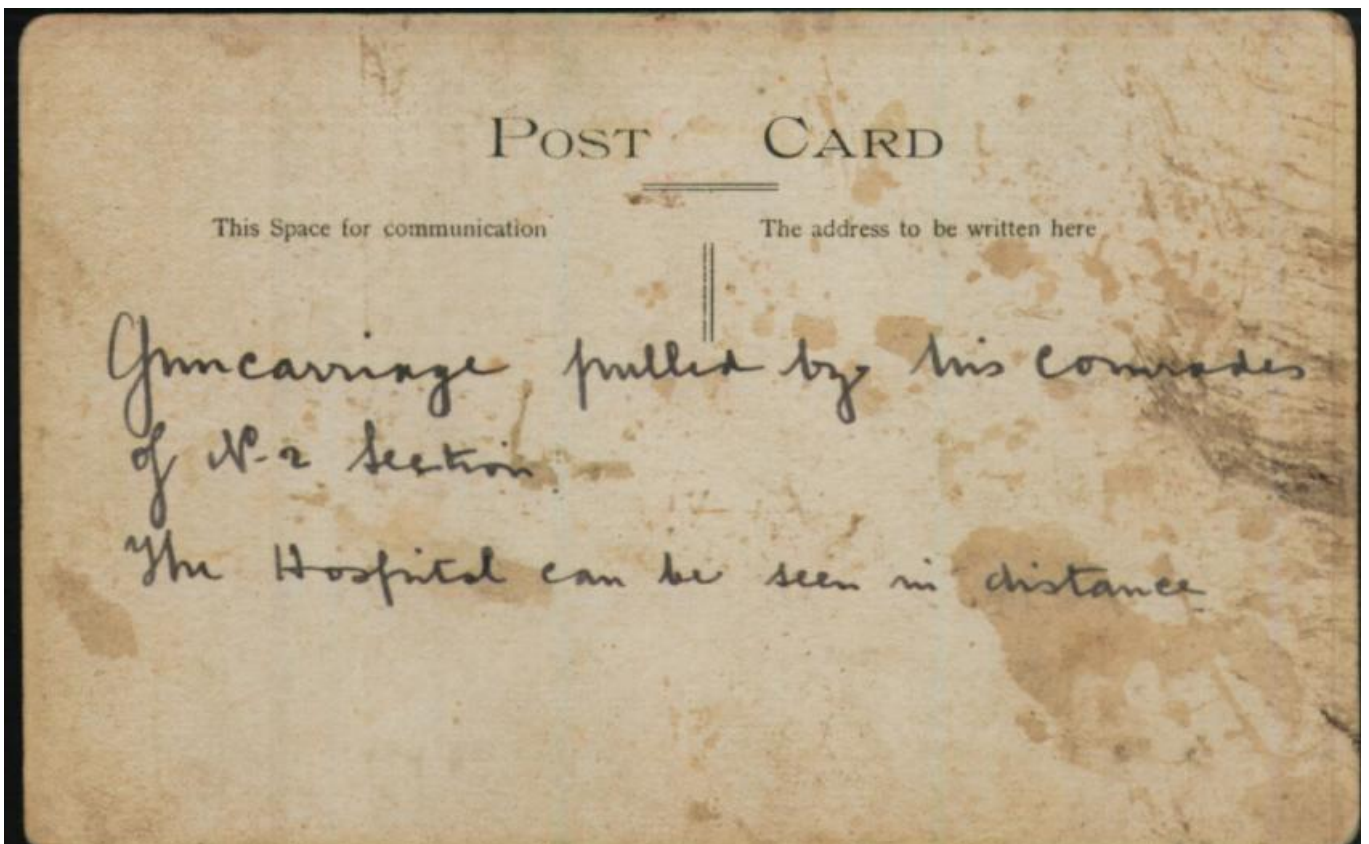 POST CARD
This Space for communication
The address to be written here
Guncarriage pulled by his comrades
of No 2 Section
The Hospital can be seen in distance